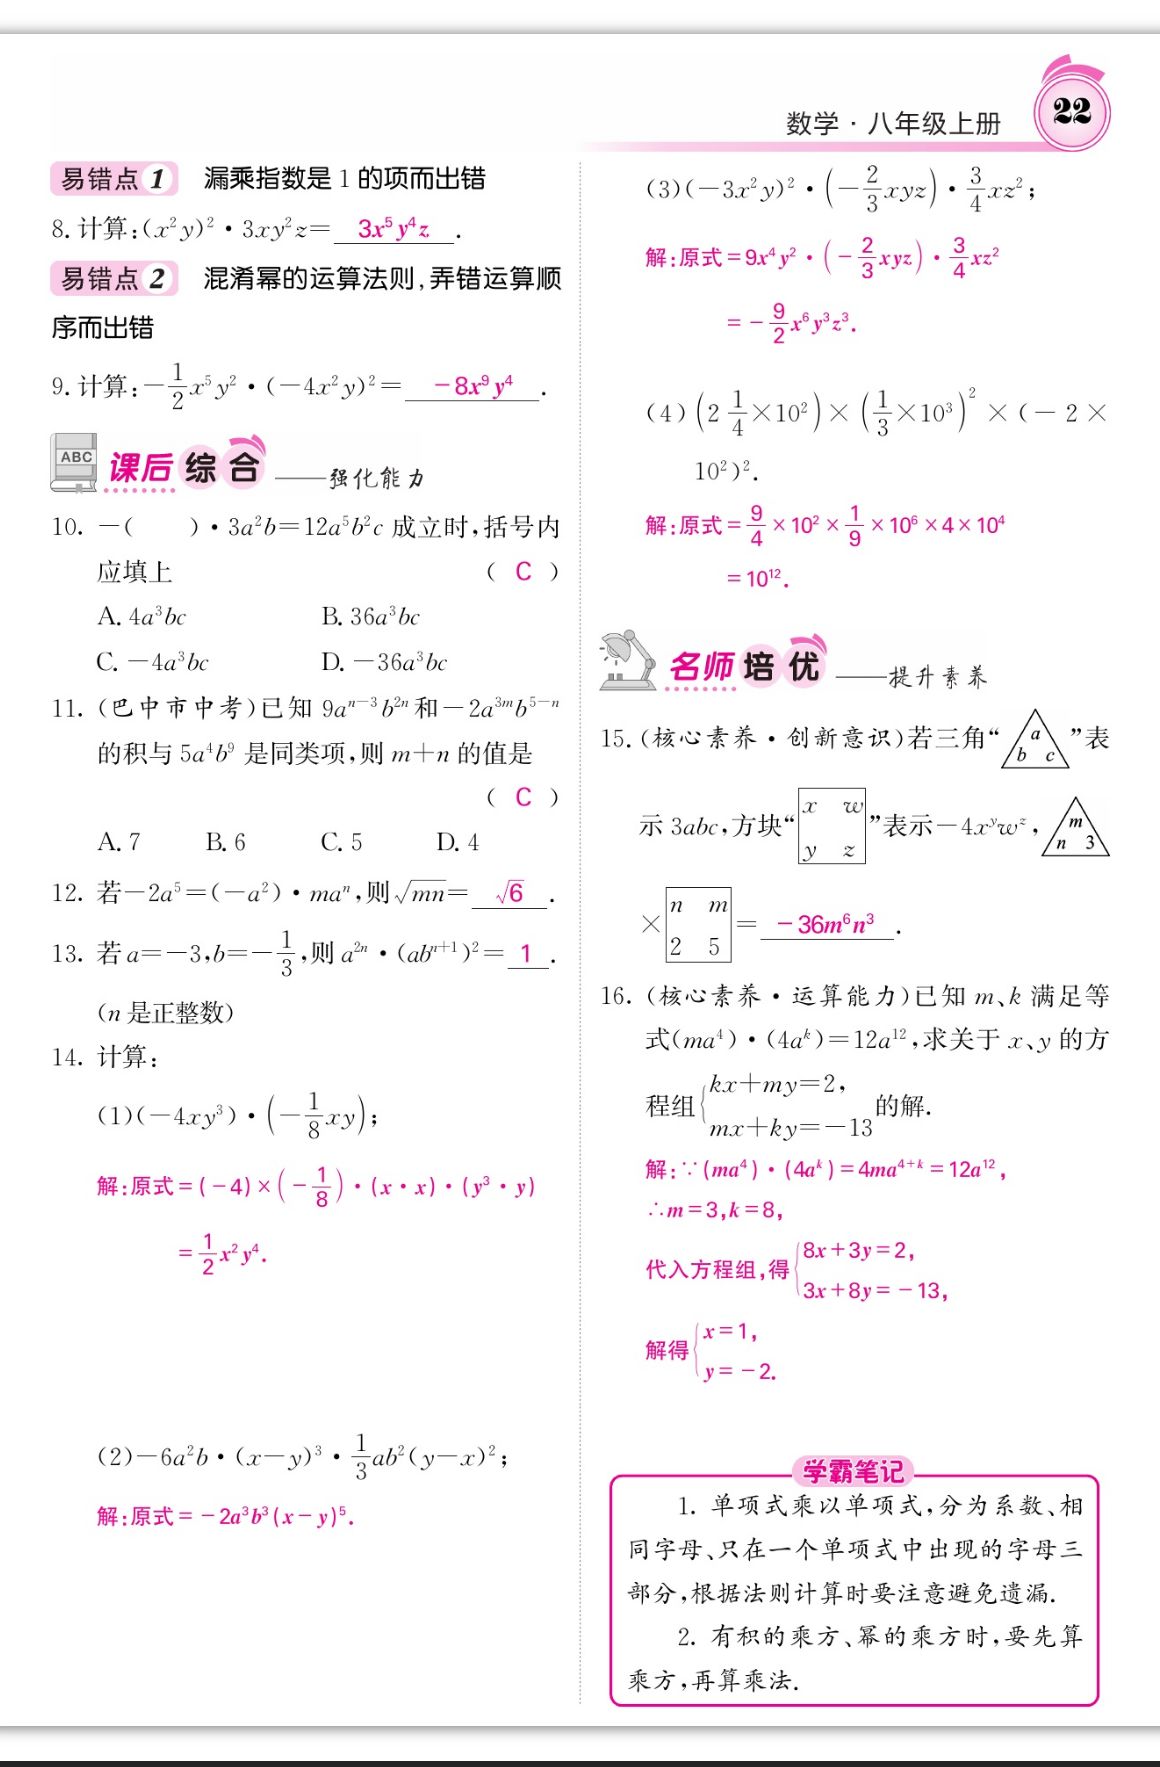 数学·八年级上册
22
易错点1 漏乘指数是1的项而出错
8. 计算:(x²y)²·3xy²z= 3x⁵y⁴z .
易错点2 混淆幂的运算法则,弄错运算顺
序而出错
9. 计算:-1/2x⁵y²·(-4x²y)²= -8x⁹y⁴ .
ABC 课后综合 ——强化能力
10. -(  )·3a²b=12a⁵b²c成立时,括号内
应填上 ( C )
A. 4a³bc B. 36a³bc
C. -4a³bc D. -36a³bc
11. (巴中市中考)已知9aⁿ⁻³b²ⁿ和-2a³ᵐb⁵⁻ⁿ
的积与5a⁴b⁹是同类项,则m+n的值是
( C )
A. 7 B. 6 C. 5 D. 4
12. 若-2a⁵=(-a²)·maⁿ,则√mn= √6 .
13. 若a=-3,b=-1/3,则a²ⁿ·(abⁿ⁺¹)²= 1 .
(n是正整数)
14. 计算:
(1)(-4xy³)·(-1/8xy);
解:原式=(-4)×(-1/8)·(x·x)·(y³·y)
=1/2x²y⁴.
(2)-6a²b·(x-y)³·1/3ab²(y-x)²;
解:原式=-2a³b³(x-y)⁵.
(3)(-3x²y)²·(-2/3xyz)·3/4xz²;
解:原式=9x⁴y²·(-2/3xyz)·3/4xz²
=-9/2x⁶y³z³.
(4)(2 1/4×10²)×(1/3×10³)²×(-2×
10²)².
解:原式=9/4×10²×1/9×10⁶×4×10⁴
=10¹².
名师培优 ——提升素养
15. (核心素养·创新意识)若三角“a b c”表
示3abc,方块“x w y z”表示-4xʸwᶻ, m n 3
× n m 2 5 = -36m⁶n³ .
16. (核心素养·运算能力)已知m、k满足等
式(ma⁴)·(4aᵏ)=12a¹²,求关于x、y的方
程组{kx+my=2, mx+ky=-13 的解.
解:∵(ma⁴)·(4aᵏ)=4ma⁴⁺ᵏ=12a¹²,
∴m=3,k=8,
代入方程组,得{8x+3y=2, 3x+8y=-13,
解得{x=1, y=-2.
学霸笔记
1. 单项式乘以单项式,分为系数、相
同字母、只在一个单项式中出现的字母三
部分,根据法则计算时要注意避免遗漏.
2. 有积的乘方、幂的乘方时,要先算
乘方,再算乘法.